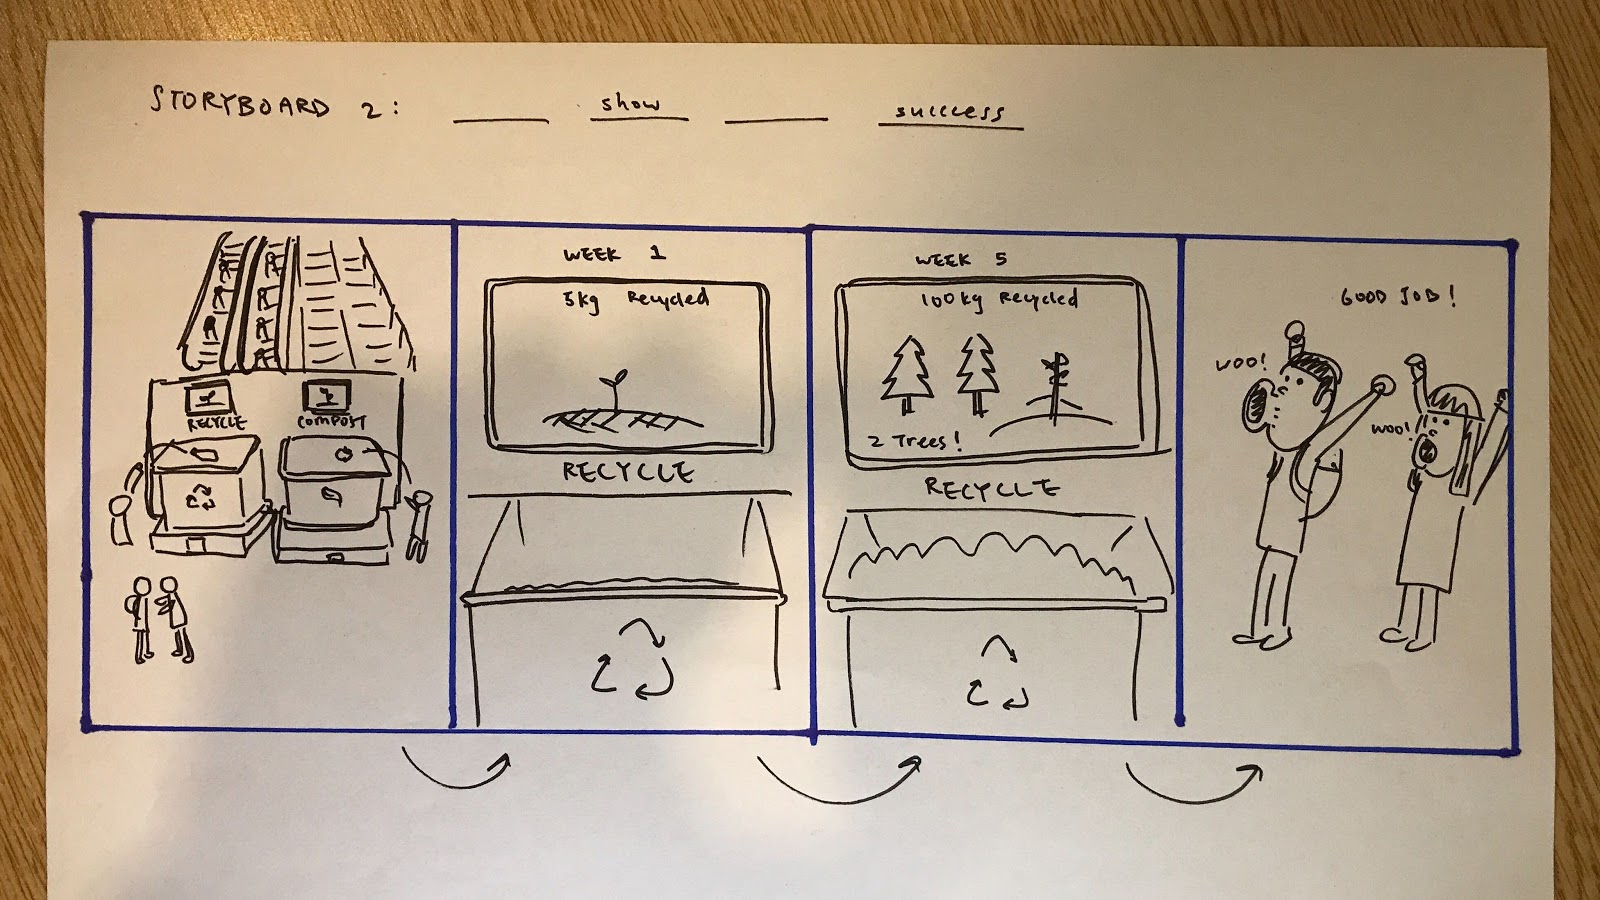 STORYBOARD 2: ____ show ____ success
RECYCLE
COMPOST
WEEK 1
5kg Recycled
RECYCLE
WEEK 5
100kg Recycled
2 Trees!
RECYCLE
GOOD JOB!
WOO!
WOO!